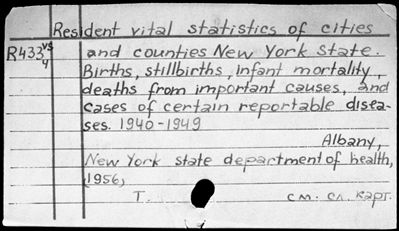 Resident vital statistics of cities
R433 vs/4 and counties New York State.
Births, stillbirths, infant mortality,
deaths from important causes, and
cases of certain reportable disea-
ses. 1940-1949
Albany,
New York state department of health,
(1956)
T. см. сл. карт.